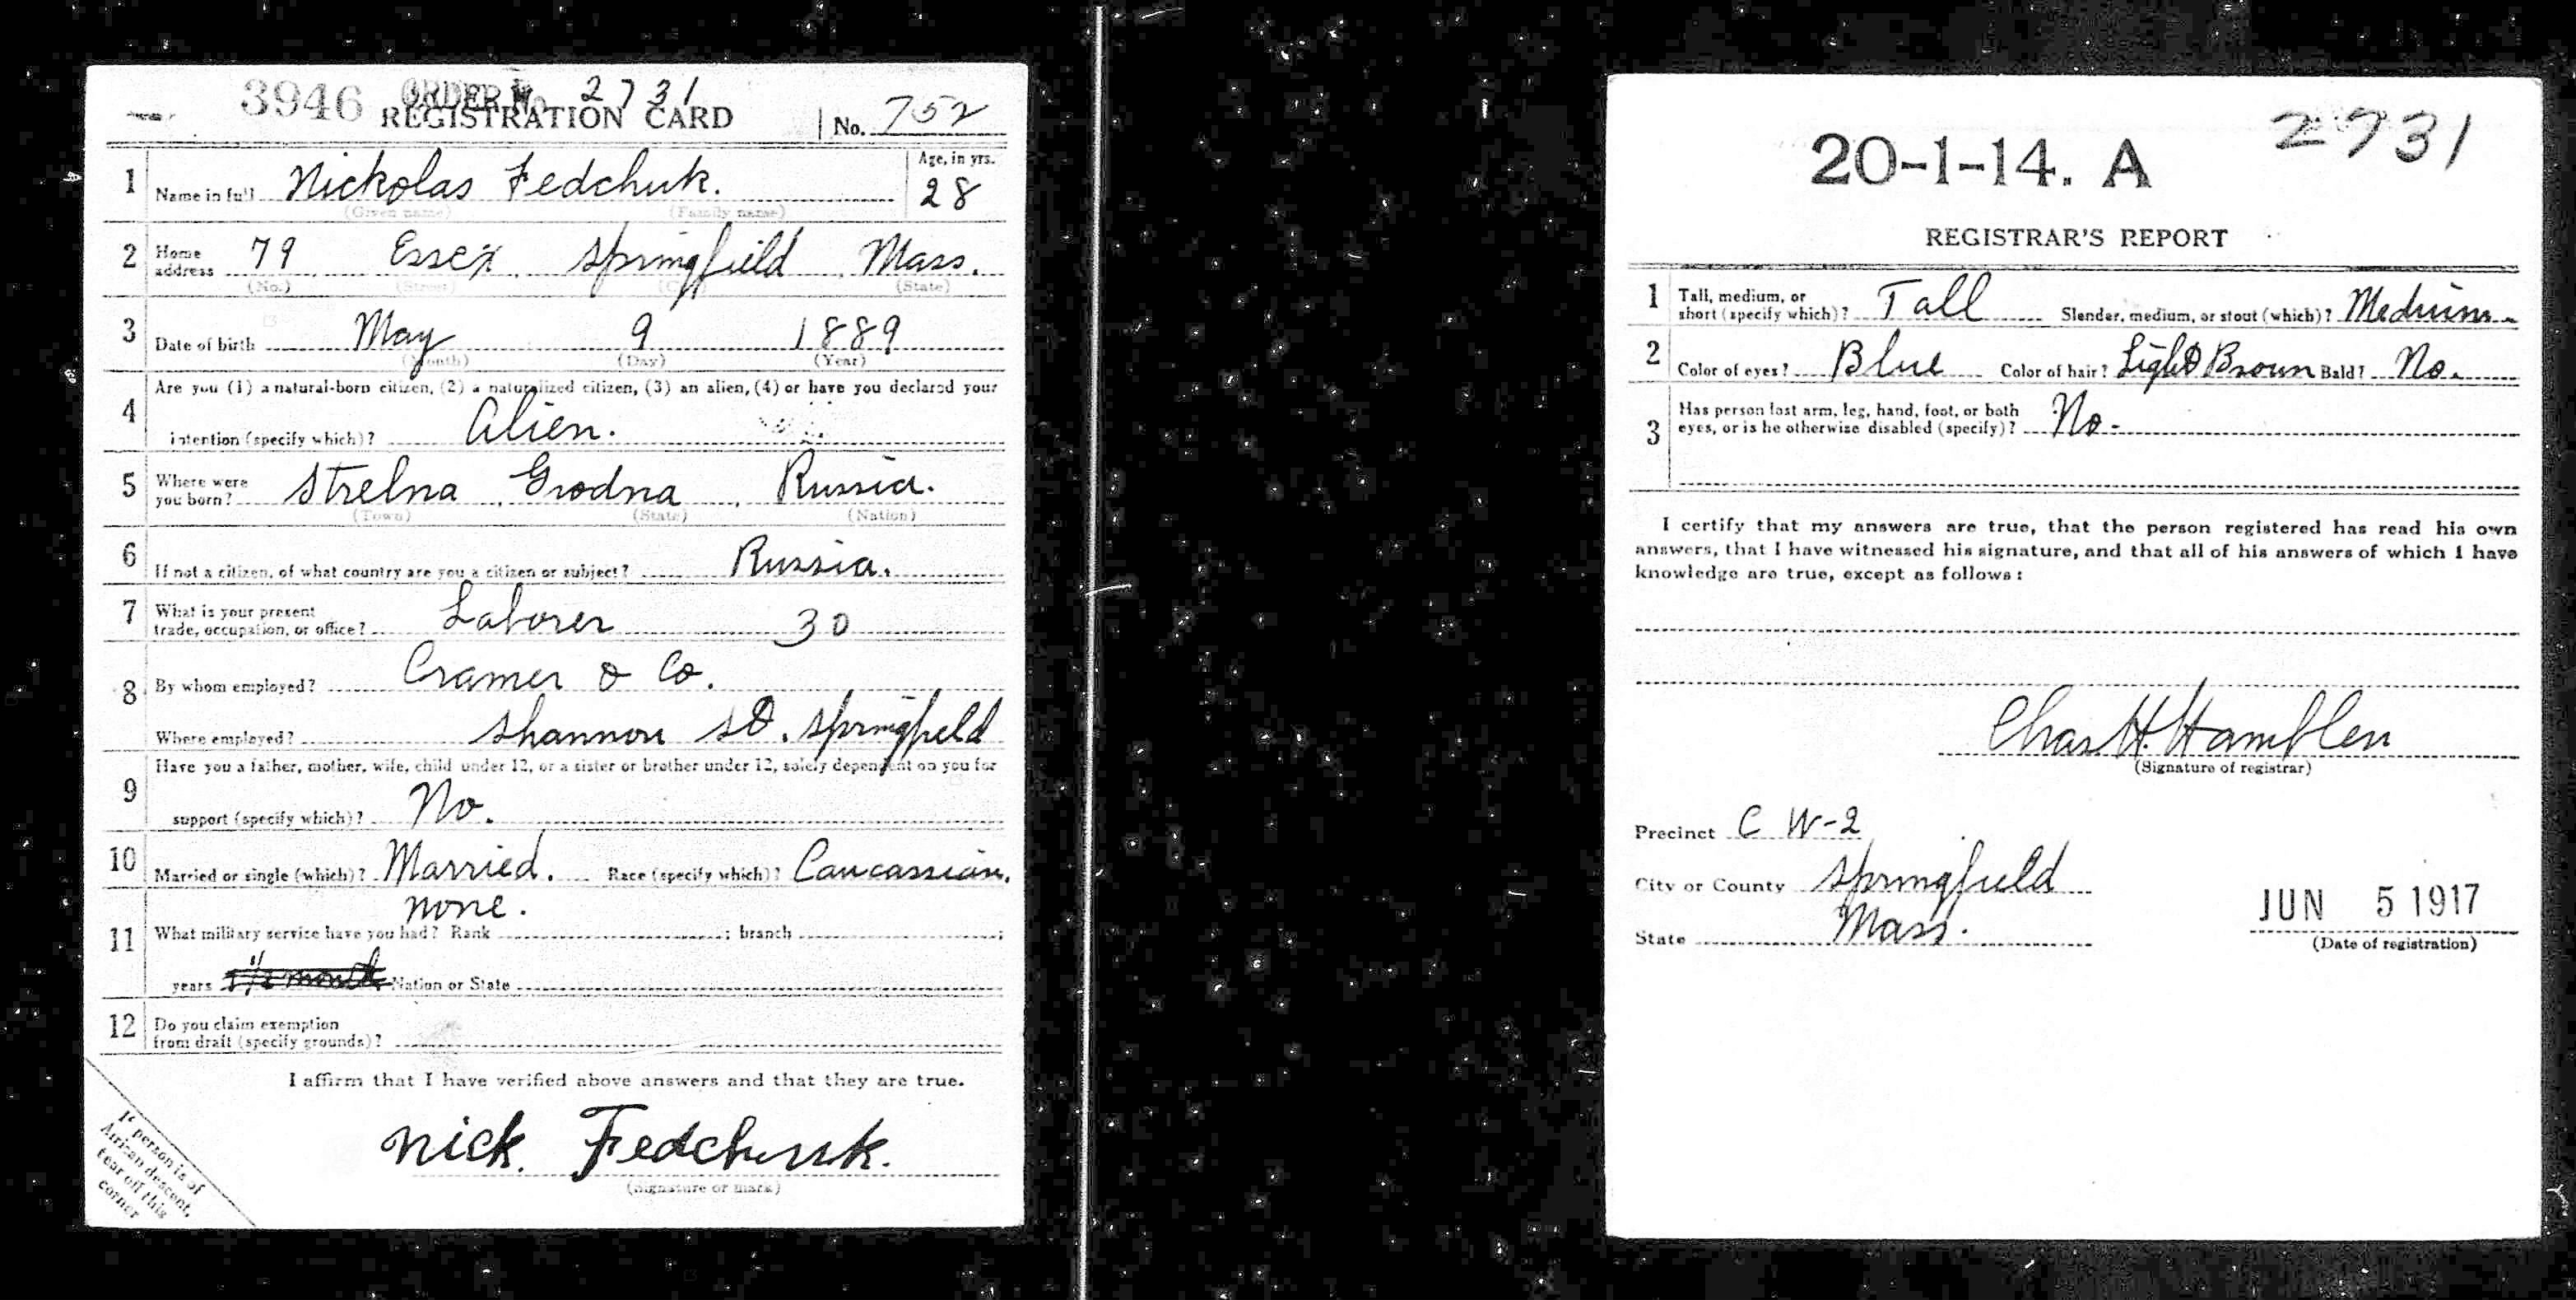 3946 ORDER No. 2731
REGISTRATION CARD No. 752
1 Name in full Nickolas Fedchuk. Age, in yrs. 28
(Given name) (Family name)
2 Home address 79 Essex Springfield Mass.
(No.) (Street) (City) (State)
3 Date of birth May 9 1889
(Month) (Day) (Year)
4 Are you (1) a natural-born citizen, (2) a naturalized citizen, (3) an alien, (4) or have you declared your
intention (specify which)? Alien.
5 Where were you born? Strelna, Grodna, Russia.
(Town) (State) (Nation)
6 If not a citizen, of what country are you a citizen or subject? Russia.
7 What is your present trade, occupation, or office? Laborer 30
8 By whom employed? Cramer & Co.
Where employed? Shannon St. Springfield
9 Have you a father, mother, wife, child under 12, or a sister or brother under 12, solely dependent on you for
support (specify which)? No.
10 Married or single (which)? Married. Race (specify which)? Caucassian.
none.
11 What military service have you had? Rank ; branch ;
years 1 1/2 month Nation or State
12 Do you claim exemption
from draft (specify grounds)?
I affirm that I have verified above answers and that they are true.
Nick. Fedchuk.
(Signature or mark)
If person is of
African descent,
tear off this
corner
2731
20-1-14. A
REGISTRAR'S REPORT
1 Tall, medium, or short (specify which)? Tall Slender, medium, or stout (which)? Medium
2 Color of eyes? Blue Color of hair? Light Brown Bald? No.
3 Has person lost arm, leg, hand, foot, or both
eyes, or is he otherwise disabled (specify)? No.
I certify that my answers are true, that the person registered has read his own
answers, that I have witnessed his signature, and that all of his answers of which I have
knowledge are true, except as follows:
Chas H. Hamblen
(Signature of registrar)
Precinct C W-2
City or County Springfield
State Mass.
JUN 5 1917
(Date of registration)